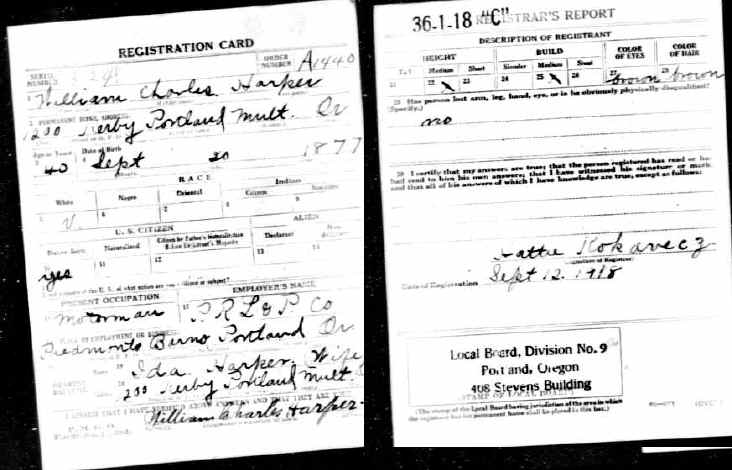 REGISTRATION CARD
SERIAL NUMBER
ORDER NUMBER A1440
William Charles Harper
PERMANENT HOME ADDRESS
1200 Kerby Portland Mult. Or
Age in Years
Date of Birth
40 Sept 20 1877
RACE
White
Negro
Oriental
Indian
Citizen
U. S. CITIZEN
ALIEN
Native Born
Naturalized
Citizen by Father's Naturalization Before Registrant's Majority
Declarant
11
12
13
yes
PRESENT OCCUPATION
EMPLOYER'S NAME
Motorman P.R.L & P Co
PLACE OF EMPLOYMENT OR BUSINESS
Piedmonte Barno Portland Or
Name
Ida Harper Wife
Kerby Portland Mult.
I AFFIRM THAT I HAVE VERIFIED ABOVE ANSWERS AND THAT THEY ARE
William Charles Harper
36-1-18 "C" REGISTRAR'S REPORT
DESCRIPTION OF REGISTRANT
HEIGHT
BUILD
COLOR OF EYES
COLOR OF HAIR
Tall
Medium
Short
Slender
Medium
Stout
21
22
23
24
25
26
27
28
brown brown
29 Has person lost arm, leg, hand, eye, or is he obviously physically disqualified?
(Specify.)
no
30 I certify that my answers are true; that the person registered has read or has
had read to him his own answers; that I have witnessed his signature or mark,
and that all of his answers of which I have knowledge are true, except as follows:
Hattie Kokavecz
(Signature of Registrar)
Date of Registration Sept 12 1918
Local Board, Division No. 9
Portland, Oregon
408 Stevens Building
STAMP OF LOCAL BOARD
(The stamp of the Local Board having jurisdiction of the area in which
the registrant has his permanent home shall be placed in this box.)